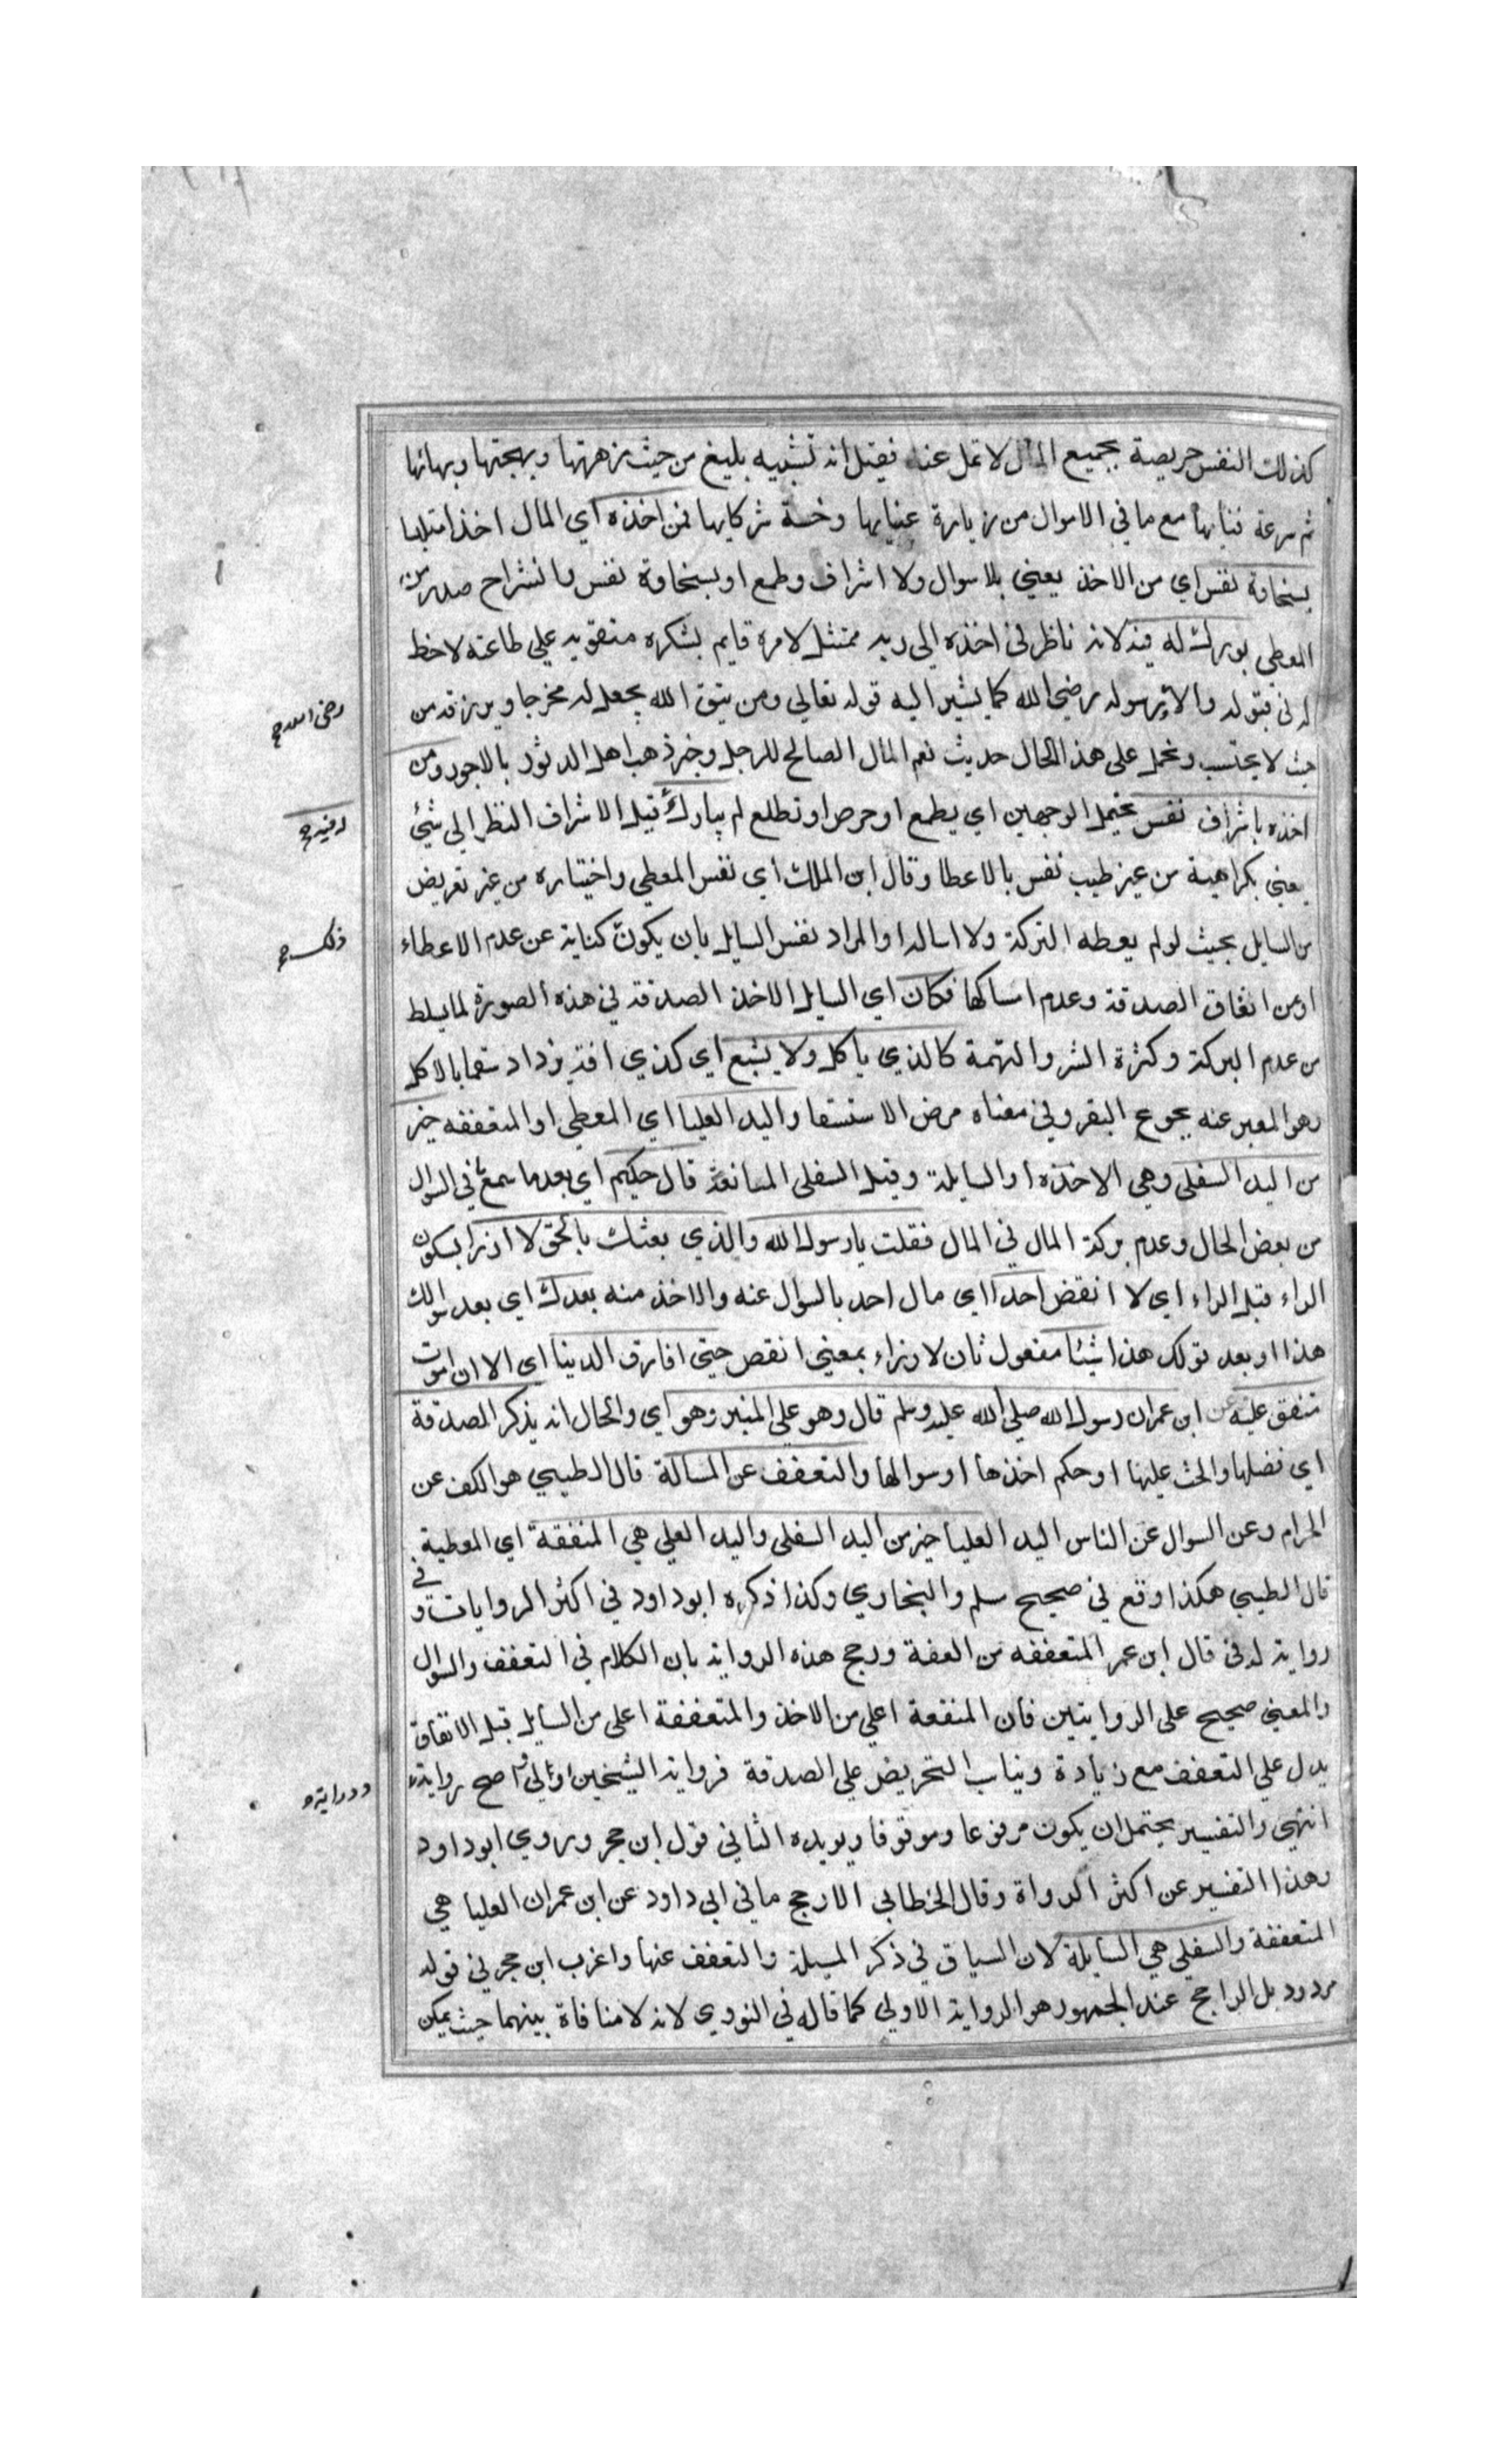 كذلك النفس حريصة بجميع المال لا تمل عنه فقيل انه تشبيه بليغ من حيث زهرتها وبهجتها وبهائها
ثم سرعة فنايها مع ما في الاموال من زيادة عنايها وخسة شركايها فمن اخذه اي المال اخذا متلبسا
بسخاوة نفس اي من الاخذ يعني بلا سوال ولا اشراف وطمع او بسخاوة نفس وانشراح صدر من
المعطي بورك له فيه لانه ناظر في اخذه الي ربه ممتثل لامره قايم بشكره متقو به علي طاعته لا حظ
له في قبوله والا رسوله رضي الله كما يشير اليه قوله تعالي ومن يتق الله يجعل له مخرجا ويرزقه من
حيث لا يحتسب ويحمل على هذا الحال حديث نعم المال الصالح للرجل وخبر ذهب اهل الدثور بالاجور ومن
اخذه باشراف نفس يحتمل الوجهين اي بطمع او حرص او تطلع لم يبارك قيل الاشراف النظر الي شئ
يعني بكراهية من غير طيب نفس بالاعطا وقال ابن الملك اي نفس المعطي واختياره من غير تعريض
من السايل بحيث لو لم يعطه التركة ولا اساله او المراد نفس السايل بان يكون كناية عن عدم الاعطاء
او من انفاق الصدقة وعدم امساكها فكان اي السايل الاخذ الصدقة في هذه الصورة لما يسلط
من عدم البركة وكثرة الشر والتهمة كالذي ياكل ولا يشبع اي كذي افة يزداد سقما بالاكل
وهو المعبر عنه بجوع البقر وفي معناه مرض الاستسقا واليد العليا اي المعطي او المتعففه خير
من اليد السفلي وهي الاخذه او السايلة وقيل السفلى المانعة قال حكيم اي بعد ما سمع في السوال
من بعض الحال وعدم بركة المال في المال فقلت يا رسول الله والذي بعثك بالحق لا ارزا بسكون
الراء قبل الزاء اي لا انقض احدا اي مال احد بالسوال عنه والاخذ منه بعدك اي بعد سوالك
هذا او بعد قولك هذا شيئا مفعول ثان لارزاء بمعني انقص حتي افارق الدنيا اي الا ان اموت
متفق عليه عن ابن عمر ان رسول الله صلي الله عليه وسلم قال وهو على المنبر وهو اي والحال انه يذكر الصدقة
اي فضلها والحث عليها او حكم اخذها او سوالها والتعفف عن المسالة قال الطيبي هو الكف عن
الحرام وعن السوال عن الناس اليد العليا خير من اليد السفلى واليد العلي هي المنفقة اي المعطية
قال الطيبي هكذا وقع في صحيح سلم والبخاري وكذا ذكره ابو داود في اكثر الروايات وفي
رواية له في قال ابن عمر المتعففه من العفة ورجح هذه الرواية بان الكلام في التعفف والسوال
والمعني صحيح على الروايتين فان المنفعة اعلي من الاخذ والمتعففة اعلى من السايل قبل الانفاق
يدل علي التعفف مع زيادة ويناب التحريض علي الصدقة فرواية الشيخين اولي اصح رواية
انتهي والتفسير يحتمل ان يكون مرفوعا وموقوفا ويويده الثاني قول ابن حجر وروي ابو داود
وهذا التفسير عن اكثر الرواة وقال الخطابي الارجح ما في ابي داود عن ابن عمر ان العليا هي
المتعففة والسفلي هي السايلة لان السياق في ذكر المسيلة والتعفف عنها واغرب ابن حجر في قوله
مردود بل الراجح عند الجمهور هو الرواية الاولي كما قاله في النووي لانه لا منافاة بينهما حيث يمكن
رضي الله
له فيه
ذلك
ودراية